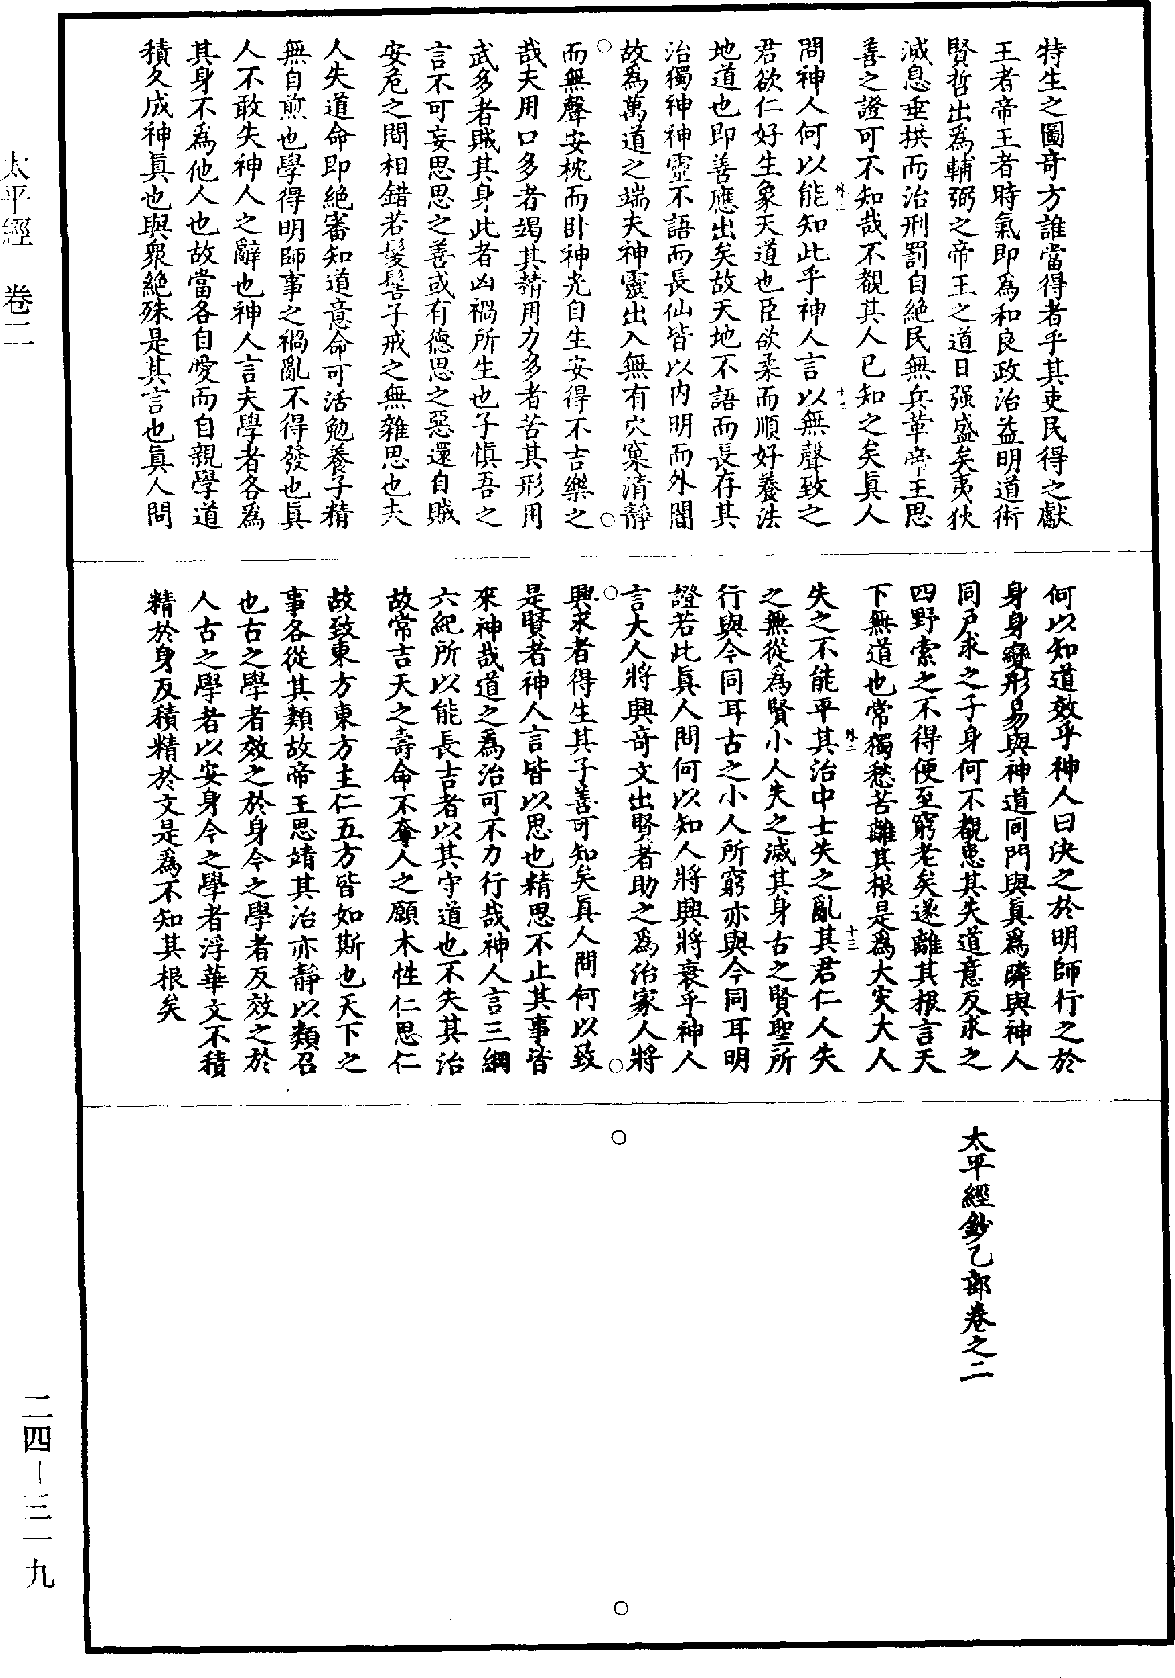 特生之圖奇方誰當得者乎其吏民得之獻
王者帝王者時氣即為和良政治益明道術
賢哲出為輔弼之帝王之道日强盛矣夷狄
滅息垂拱而治刑罰自絕民無兵革帝王思
善之證可不知哉不觀其人已知之矣真人
問神人何以能知此乎神人言以無聲致之
君欲仁好生象天道也臣欲柔而順好養法
地道也即善應出矣故天地不語而長存其
治獨神神靈不語而長仙皆以内明而外闇
故為萬道之端夫神靈出入無有穴窠清靜
而無聲安枕而卧神光自生安得不吉樂之
哉夫用口多者竭其精用力多者苦其形用
武多者賊其身此者凶禍所生也子慎吾之
言不可妄思思之善或有德思之惡還自賊
安危之間相錯若髮髻子戒之無雜思也夫
人失道命即絕審知道意命可活勉養子精
無自煎也學得明師事之禍亂不得發也真
人不敢失神人之辭也神人言夫學者各為
其身不為他人也故當各自愛而自親學道
積久成神真也與眾絕殊是其言也真人問
何以知道效乎神人曰決之於明師行之於
身身變形易與神道同門與真為隣與神人
同戶求之子身何不觀患其失道意反求之
四野索之不得便至窮老矣遂離其根言天
下無道也常獨愁苦離其根是為大灾大人
失之不能平其治中士失之亂其君仁人失
之無從為賢小人失之滅其身古之賢聖所
行與今同耳古之小人所窮亦與今同耳明
證若此真人問何以知人將興將衰乎神人
言大人將興奇文出賢者助之為治家人將
興求者得生其子善可知矣真人問何以致
是賢者神人言皆以思也精思不止其事皆
來神哉道之為治可不力行哉神人言三綱
六紀所以能長吉者以其守道也不失其治
故常吉天之壽命不奪人之願木性仁思仁
故致東方東方主仁五方皆如斯也天下之
事各從其類故帝王思靖其治亦靜以類召
也古之學者效之於身今之學者反效之於
人古之學者以安身今之學者浮華文不積
精於身反積精於文是為不知其根矣
太平經鈔乙部卷之二
太平經 卷二
二四－三一九